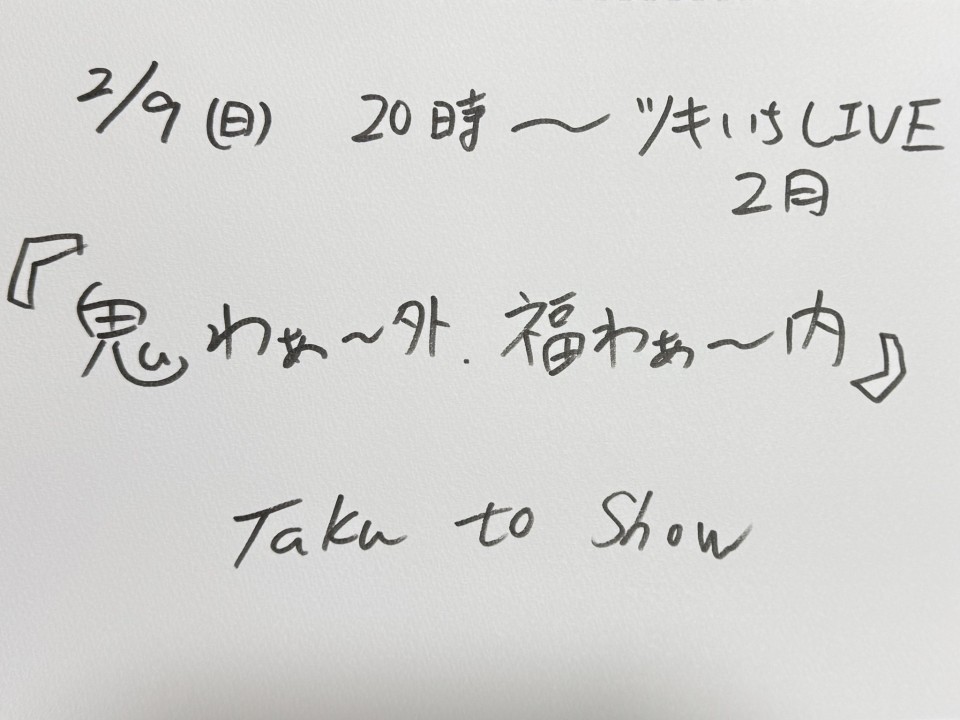 2/9(日) 20時〜ツキいちLIVE
2月
『鬼わぁ〜外.福わぁ〜内』
Taku to Show